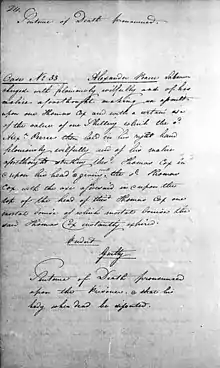 Sentence of Death pronounced.
Case No. 33 Alexander Pearce Labourer
charged with feloniously wilfully and of his
malice aforethought making an assault
upon one Thomas Cox and with a certain axe
of the value of one Shilling which the sd.
Alexr. Pearce then held in his right hand
feloniously wilfully and of his malice
aforethought striking the sd. Thomas Cox in
& upon his head & giving the sd. Thomas
Cox with the axe aforesaid in & upon the
top of the head of him Thomas Cox one
mortal bruise of which mortal bruise the
said Thomas Cox instantly expired.
Verdict
Guilty
Sentence of Death pronounced
upon the Prisoner & that his
body when dead be dissected.